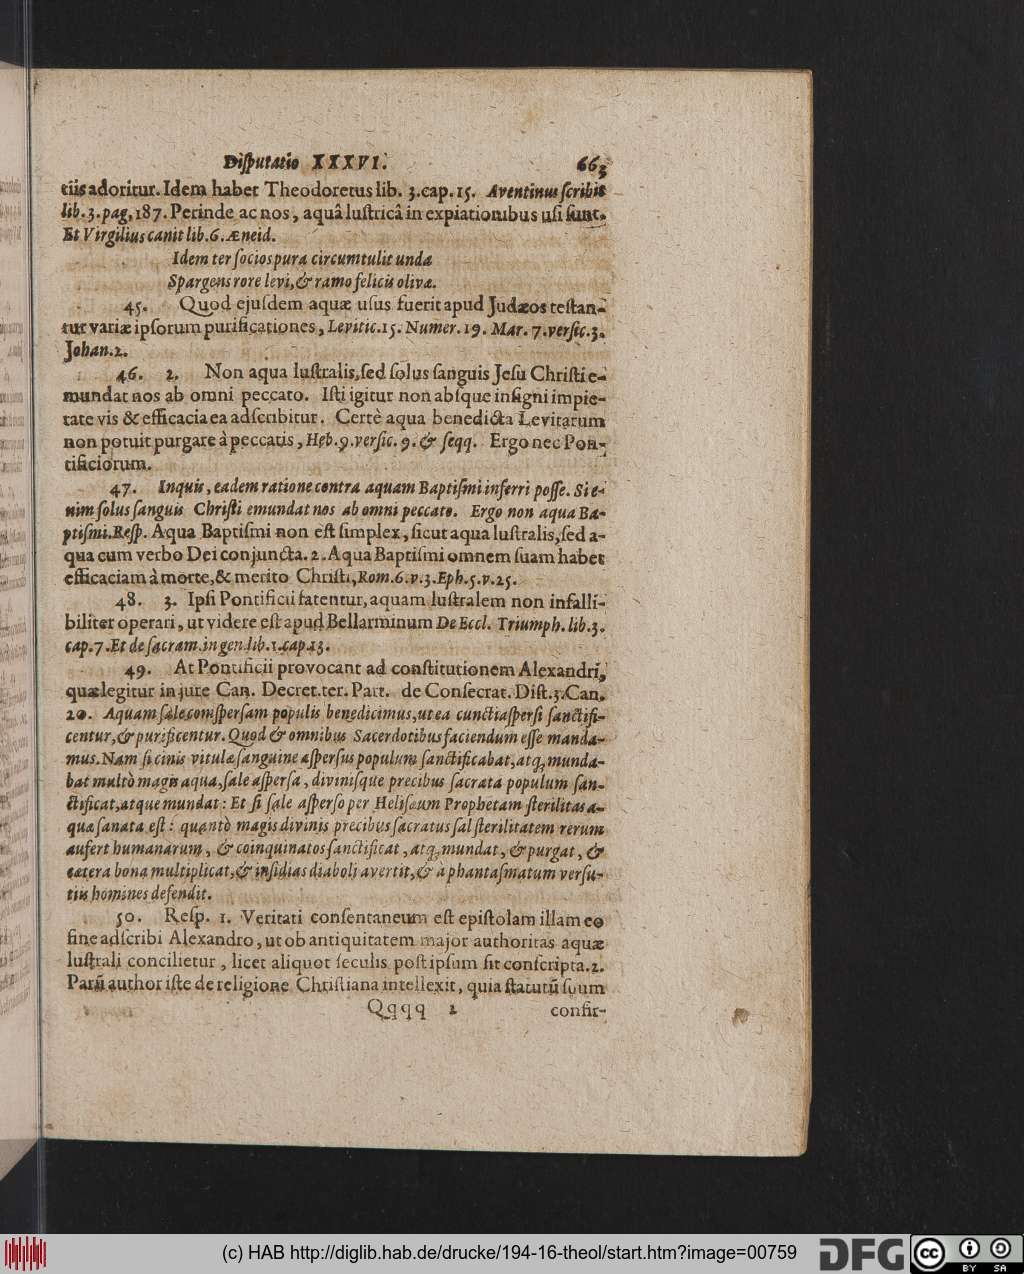 Diſputatio XXXVI. 663
tiis adoritur. Idem habet Theodoretus lib. 3. cap. 15. Aventinus ſcribit
lib. 3. pag, 187. Perinde ac nos, aquâ luſtricâ in expiationibus uſi ſunt.
Et Virgilius canit lib. 6. Æneid.
Idem ter ſocios pura circumtulit unda
Spargens rore levi, & ramo felicis olivæ.
45. Quod ejuſdem aquæ uſus fuerit apud Judæos teſtan-
tur variæ ipſorum purificationes, Levitic. 15. Numer. 19. Mar. 7. verſic. 3.
Johan. 2.
46. 2. Non aqua luſtralis, ſed ſolus ſanguis Jeſu Chriſti e-
mundat nos ab omni peccato. Iſti igitur non abſque inſigni impie-
tate vis & efficacia ea adſcribitur. Certè aqua benedicta Levitarum
non potuit purgare à peccatis, Heb. 9. verſic. 9. & ſeqq. Ergo nec Pon-
tificiorum.
47. Inquis, eadem ratione contra aquam Baptiſmi inferri poſſe. Si e-
nim ſolus ſanguis Chriſti emundat nos ab omni peccato. Ergo non aqua Ba-
ptiſmi. Reſp. Aqua Baptiſmi non eſt ſimplex, ſicut aqua luſtralis, ſed a-
qua cum verbo Dei conjuncta. 2. Aqua Baptiſmi omnem ſuam habet
efficaciam à morte, & merito Chriſti, Rom. 6. v. 3. Eph. 5. v. 25.
48. 3. Ipſi Pontificii fatentur, aquam luſtralem non infalli-
biliter operari, ut videre eſt apud Bellarminum De Eccl. Triumph. lib. 3.
cap. 7. Et de ſacram. in gen. lib. 1. cap. 13.
49. At Pontificii provocant ad conſtitutionem Alexandri,
quæ legitur in jure Can. Decret. ter. Part. de Conſecrat. Diſt. 3. Can.
20. Aquam ſale conſperſam populis benedicimus, ut ea cuncti aſperſi ſanctifi-
centur, & purificentur. Quod & omnibus Sacerdotibus faciendum eſſe manda-
mus. Nam ſi cinis vitulæ ſanguine aſperſus populum ſanctificabat, atq, munda-
bat multò magis aqua, ſale aſperſa, diviniſque precibus ſacrata populum ſan-
ctificat, atque mundat: Et ſi ſale aſperſo per Heliſæum Prophetam ſterilitas a-
quæ ſanata eſt: quantò magis divinis precibus ſacratus ſal ſterilitatem rerum
aufert humanarum, & coinquinatos ſanctificat, atq, mundat, & purgat, &
cætera bona multiplicat, & inſidias diaboli avertit, & à phantaſmatum verſu-
tiis homines defendit.
50. Reſp. 1. Veritati conſentaneum eſt epiſtolam illam eo
fine adſcribi Alexandro, ut ob antiquitatem major authoritas aquæ
luſtrali concilietur, licet aliquot ſeculis poſt ipſum ſit conſcripta. 2.
Parũ author iſte de religione Chriſtiana intellexit, quia ſtatutũ ſuum
Qqqq 2 confir-
(c) HAB http://diglib.hab.de/drucke/194-16-theol/start.htm?image=00759
DFG
CC
BY SA